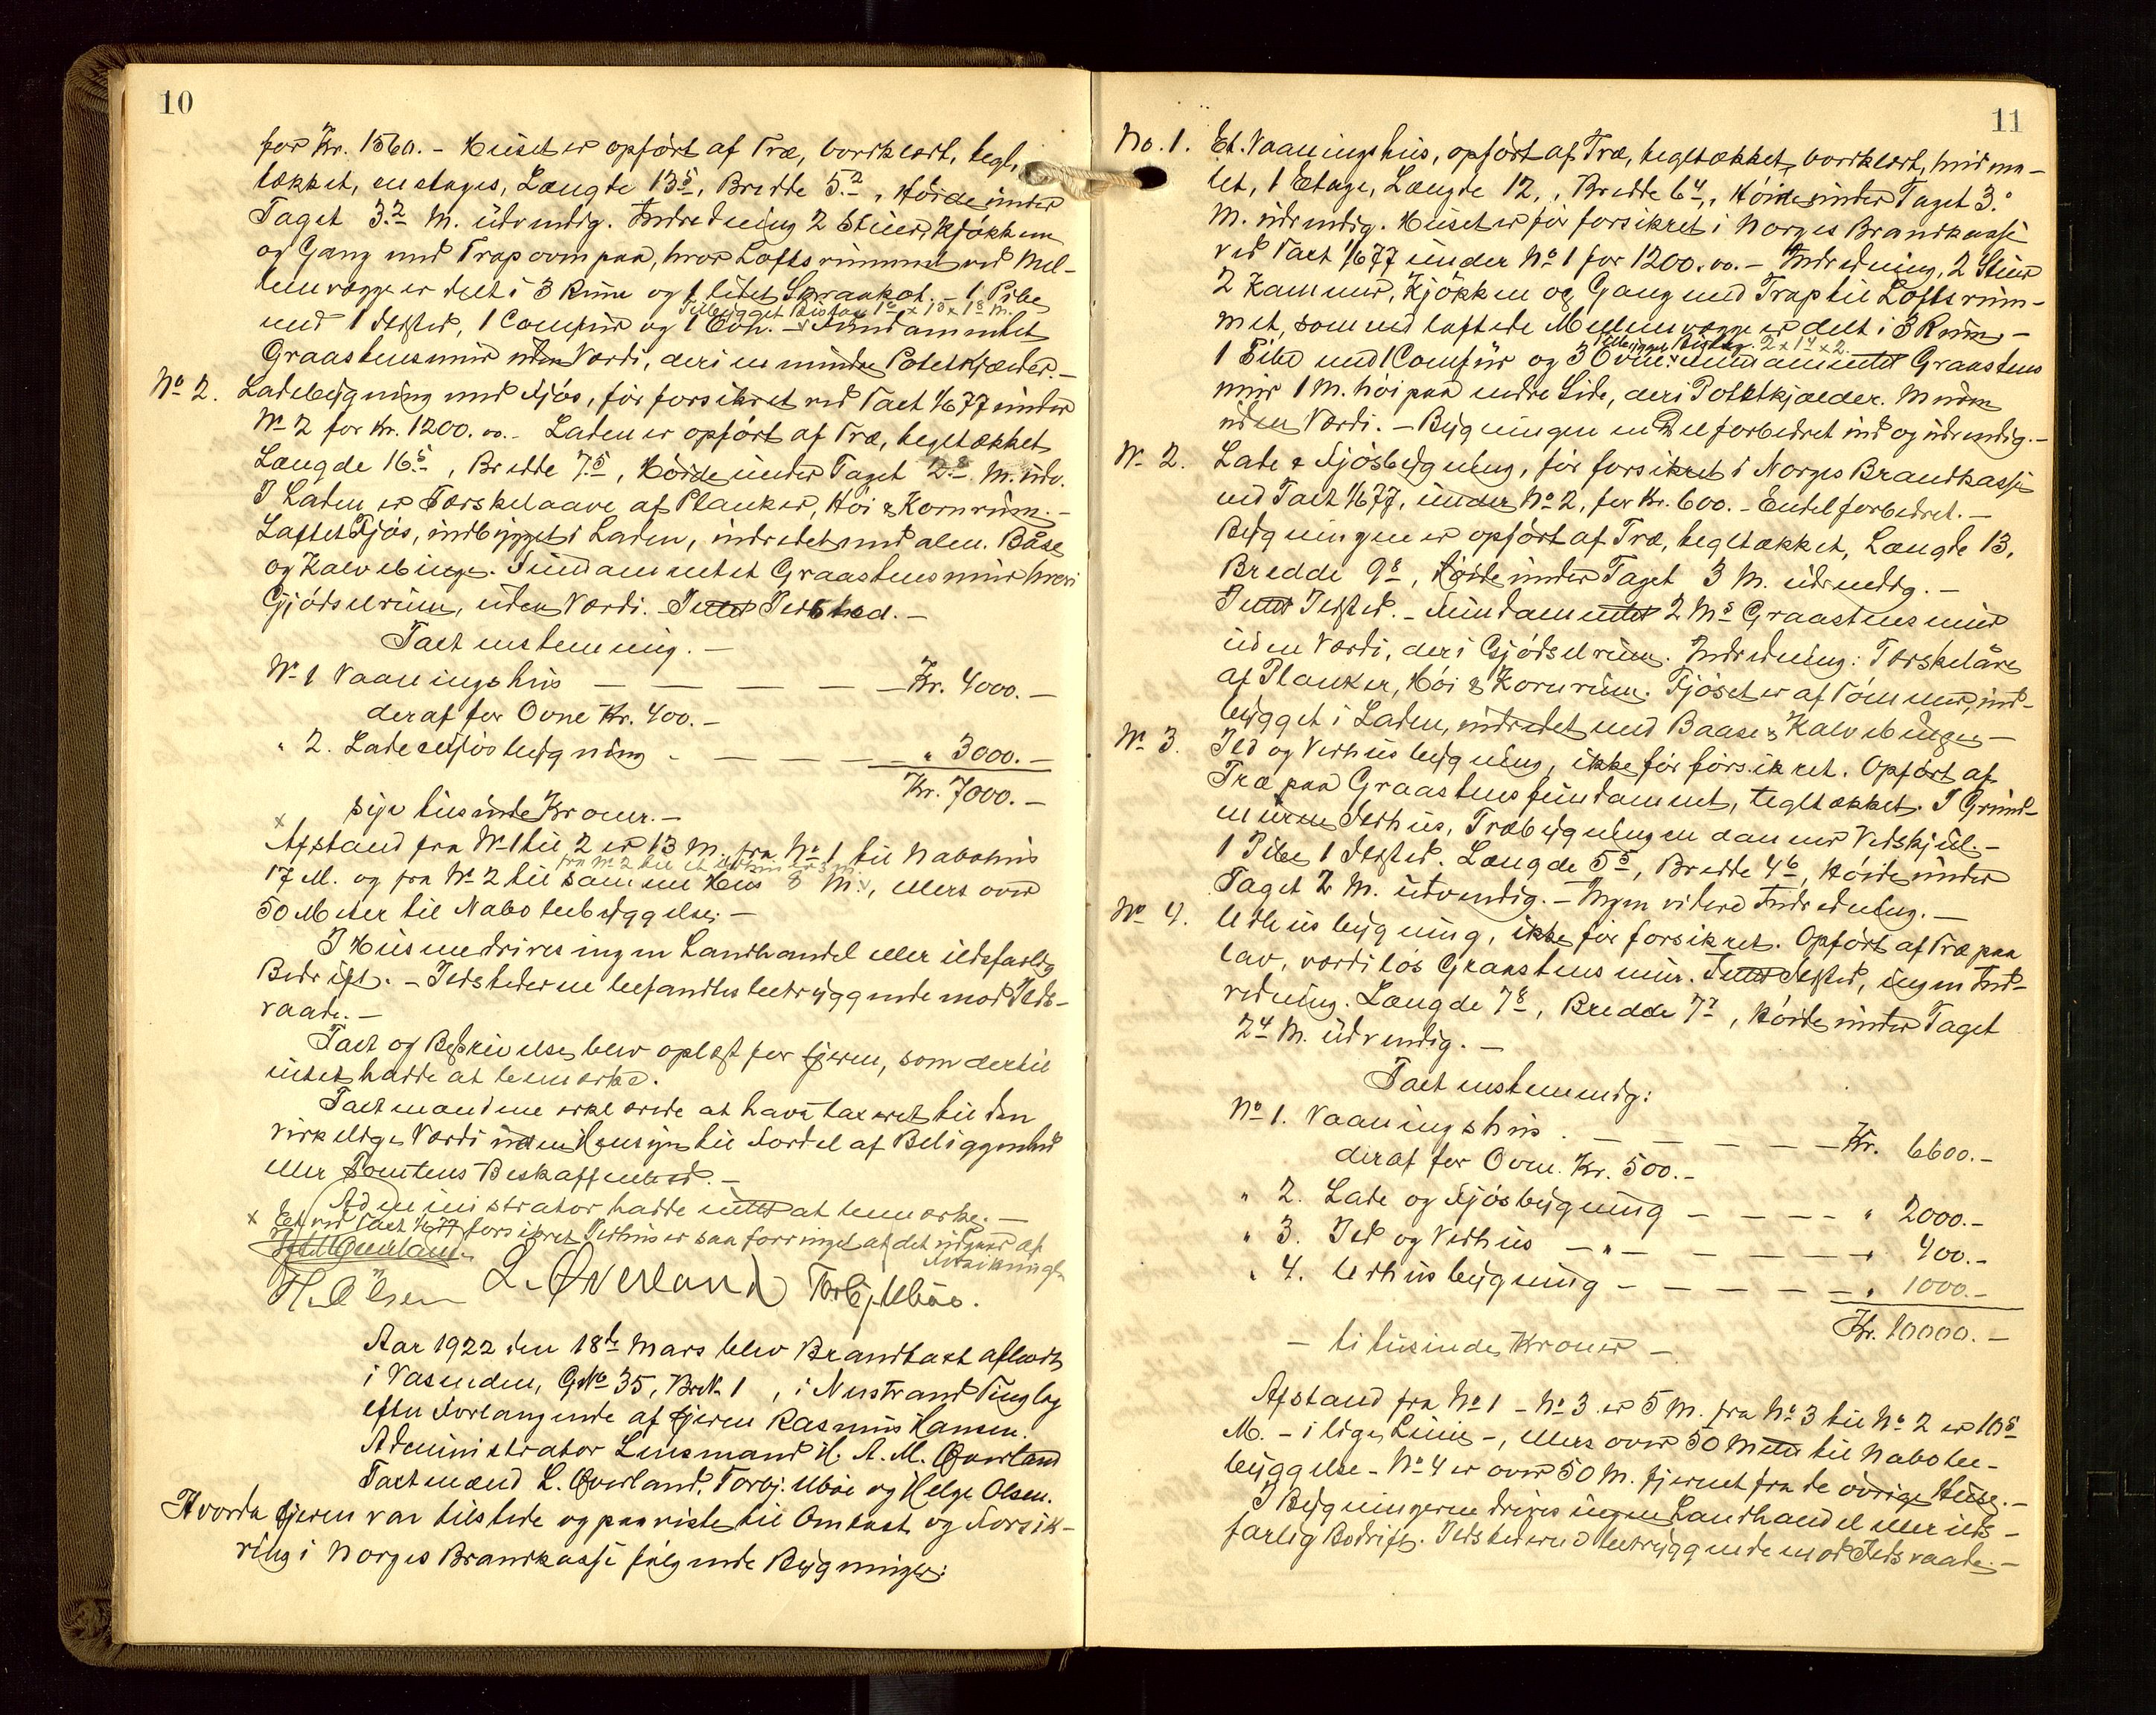 10
for Kr. 1560.- Huset er opført af Træ, bordklædt, tegl-
tækket, en etages, Længde 13⁵, Bredde 5.², Høide under
Taget 3.² M. udvendig. Indredning 2 Stuer, Kjøkken
og Gang med Trap ovenpaa, hvor Loftsrummet ved Mel-
lemvægge er delt i 3 Rum og 1 lidet Skraakot. - 1 Pibe
Tilbygget Bislag
med 1 Ildsted, 1 Comfur og 1 Ovn. - Fundamentet
Graastensmur uden Værdi, deri en mindre Potetkjælder. -
No 2. Ladebygning med Fjøs, før forsikret ved Taxt 1/6 77 under
No 2 for Kr. 1200.oo. - Laden er opført af Træ, tegltækket,
Længde 16⁵, Bredde 7.⁵, Høide under Taget 2.⁸ M. udv.
I Laden er Tærskelaave af Planker, Høi & Kornrum. -
Loftet Fjøs, indbygget i Laden, indredet med alm. Båse
og Kalvebinge. Fundamentet Graastensmur hvori
Gjødselrum, uden Værdi. Intet Ildsted. -
Taxt enstemmig. -
No 1 Vaaningshus — — — — — Kr. 4000.-
deraf for Ovne Kr. 400.-
" 2. Lade & Fjøsbygning - — — — " 3000.-
Kr. 7000.-
syv tusinde Kroner. -
x
Afstand fra No 1 til 2 er 13 M. fra No 1 til Nabohus
fra No 2 til et
17 M. og fra No 2 til samme Hus 8 M., ellers over
50 Meter til Nabobebyggelse. -
I Husene drives ingen Landhandel eller ildsfarlig
Bedrift. - Ildstederne befandtes betryggende mod Ilds-
vaade. -
Taxt og Beskrivelse blev oplæst for Ejeren, som dertil
intet hadde at bemærke.
Taxtmændene erklærede at have taxeret til den
virkelige Værdi uden Hensyn til Fordel af Beliggenhed
eller Tomtens Beskaffenhed. -
Administrator hadde intet at bemærke. -
x Et ved Taxt 1/6 77 forsikret Ildhus er saa forringet at det udgaar af
Forsikringen
H. Olsen L. Øverland Torbj. Ubøe.
Aar 1922 den 18de Mars blev Brandtaxt afholdt
i Vasenden, GNo 35, BrN. 1, i Nerstrand Tinglag
efter Forlangende af Ejeren Rasmus Hansen.
Administrator Lensmand H. A. M. Øverland
Taxtmænd L. Øverland, Torbj. Ubøe og Helge Olsen.
Hvorda Ejeren var tilstede og paaviste til Omtaxt og Forsik-
ring i Norges Brandkasse følgende Bygninger:
11
No. 1. Et Vaaningshus, opført af Træ, tegltækket, bordklædt, hvidma-
let, 1 Etage, Længde 12, Bredde 6⁴, Høide under Taget 3.⁰
M. udvendig. Huset er før forsikret i Norges Brandkasse
ved Taxt 1/6 77 under No 1 for 1200.oo. - Indredning, 2 Stuer
2 Kammer, Kjøkken og Gang med Trap til Loftsrum-
met, som ved loftede Mellemvægge er delt i 3 Rum, -
Tilbygget Bislag. 2 x 1⁴ x 2.
1 Pibe med 1 Comfur og 3 Ovne. Fundamentet Graastens
mur 1 M. høi paa nedre Side, deri Potetkjælder. Muren
uden Værdi. - Bygningen en Del forbedret ind og udvendig. -
No 2. Lade & Fjøsbygning, før forsikret i Norges Brandkasse
ved Taxt 1/6 77, under No 2, for Kr. 600. - Endel forbedret. -
Bygningen er opført af Træ, tegltækket, Længde 13,
Bredde 9⁸, Høide under Taget 3 M. udvendig. -
Intet Ildsted. - Fundamentet 2 M⁵ Graastensmur
uden Værdi, deri Gjødselrum. Indredning: Tærskelåve
af Planker, Høi & Kornrum. Fjøset er af Tømmer, ind-
bygget i Laden, indredet med Baase & Kalvebinge -
No 3. Ild og Vedhusbygning, ikke før forsikret. Opført af
Træ paa Graastensfundament, tegltækket. I Grund-
muren Ildhus, Træbygningen danner Vedskjul. -
1 Pibe 1 Ildsted. Længde 5⁵, Bredde 4⁶, Høide under
Taget 2 M. udvendig. - Ingen videre Indredning. -
No 4. Udhusbygning, ikke før forsikret. Opført af Træ paa
lav, værdiløs Graastensmur. Intet Ildsted, ingen Ind-
redning. Længde 7⁸, Bredde 7², Høide under Taget
2⁴ M. udvendig. -
Taxt enstemmig:
No 1. Vaaningshus . — — — — — Kr. 6600.-
deraf for Ovne. Kr. 500.-
" 2. Lade og Fjøsbygning — — — — " 2000.-
" 3. Ild og Vedhus — " — — — — " 400.-
" 4. Udhusbygning — — — — — " 1000.-
Kr. 10000.-
- ti tusinde Kroner -
Afstand fra No 1 - No 3 er 5 M. fra No 3 til No 2 er 10⁵
M. - i lige Linie -, ellers over 50 Meter til Nabobe-
byggelse - No 4 er over 50 M. fjernet fra de øvrige Huse. -
I Bygningerne drives ingen Landhandel eller ilds-
farlig Bedrift. Ildstederne betryggende mod Ildsvaade. -